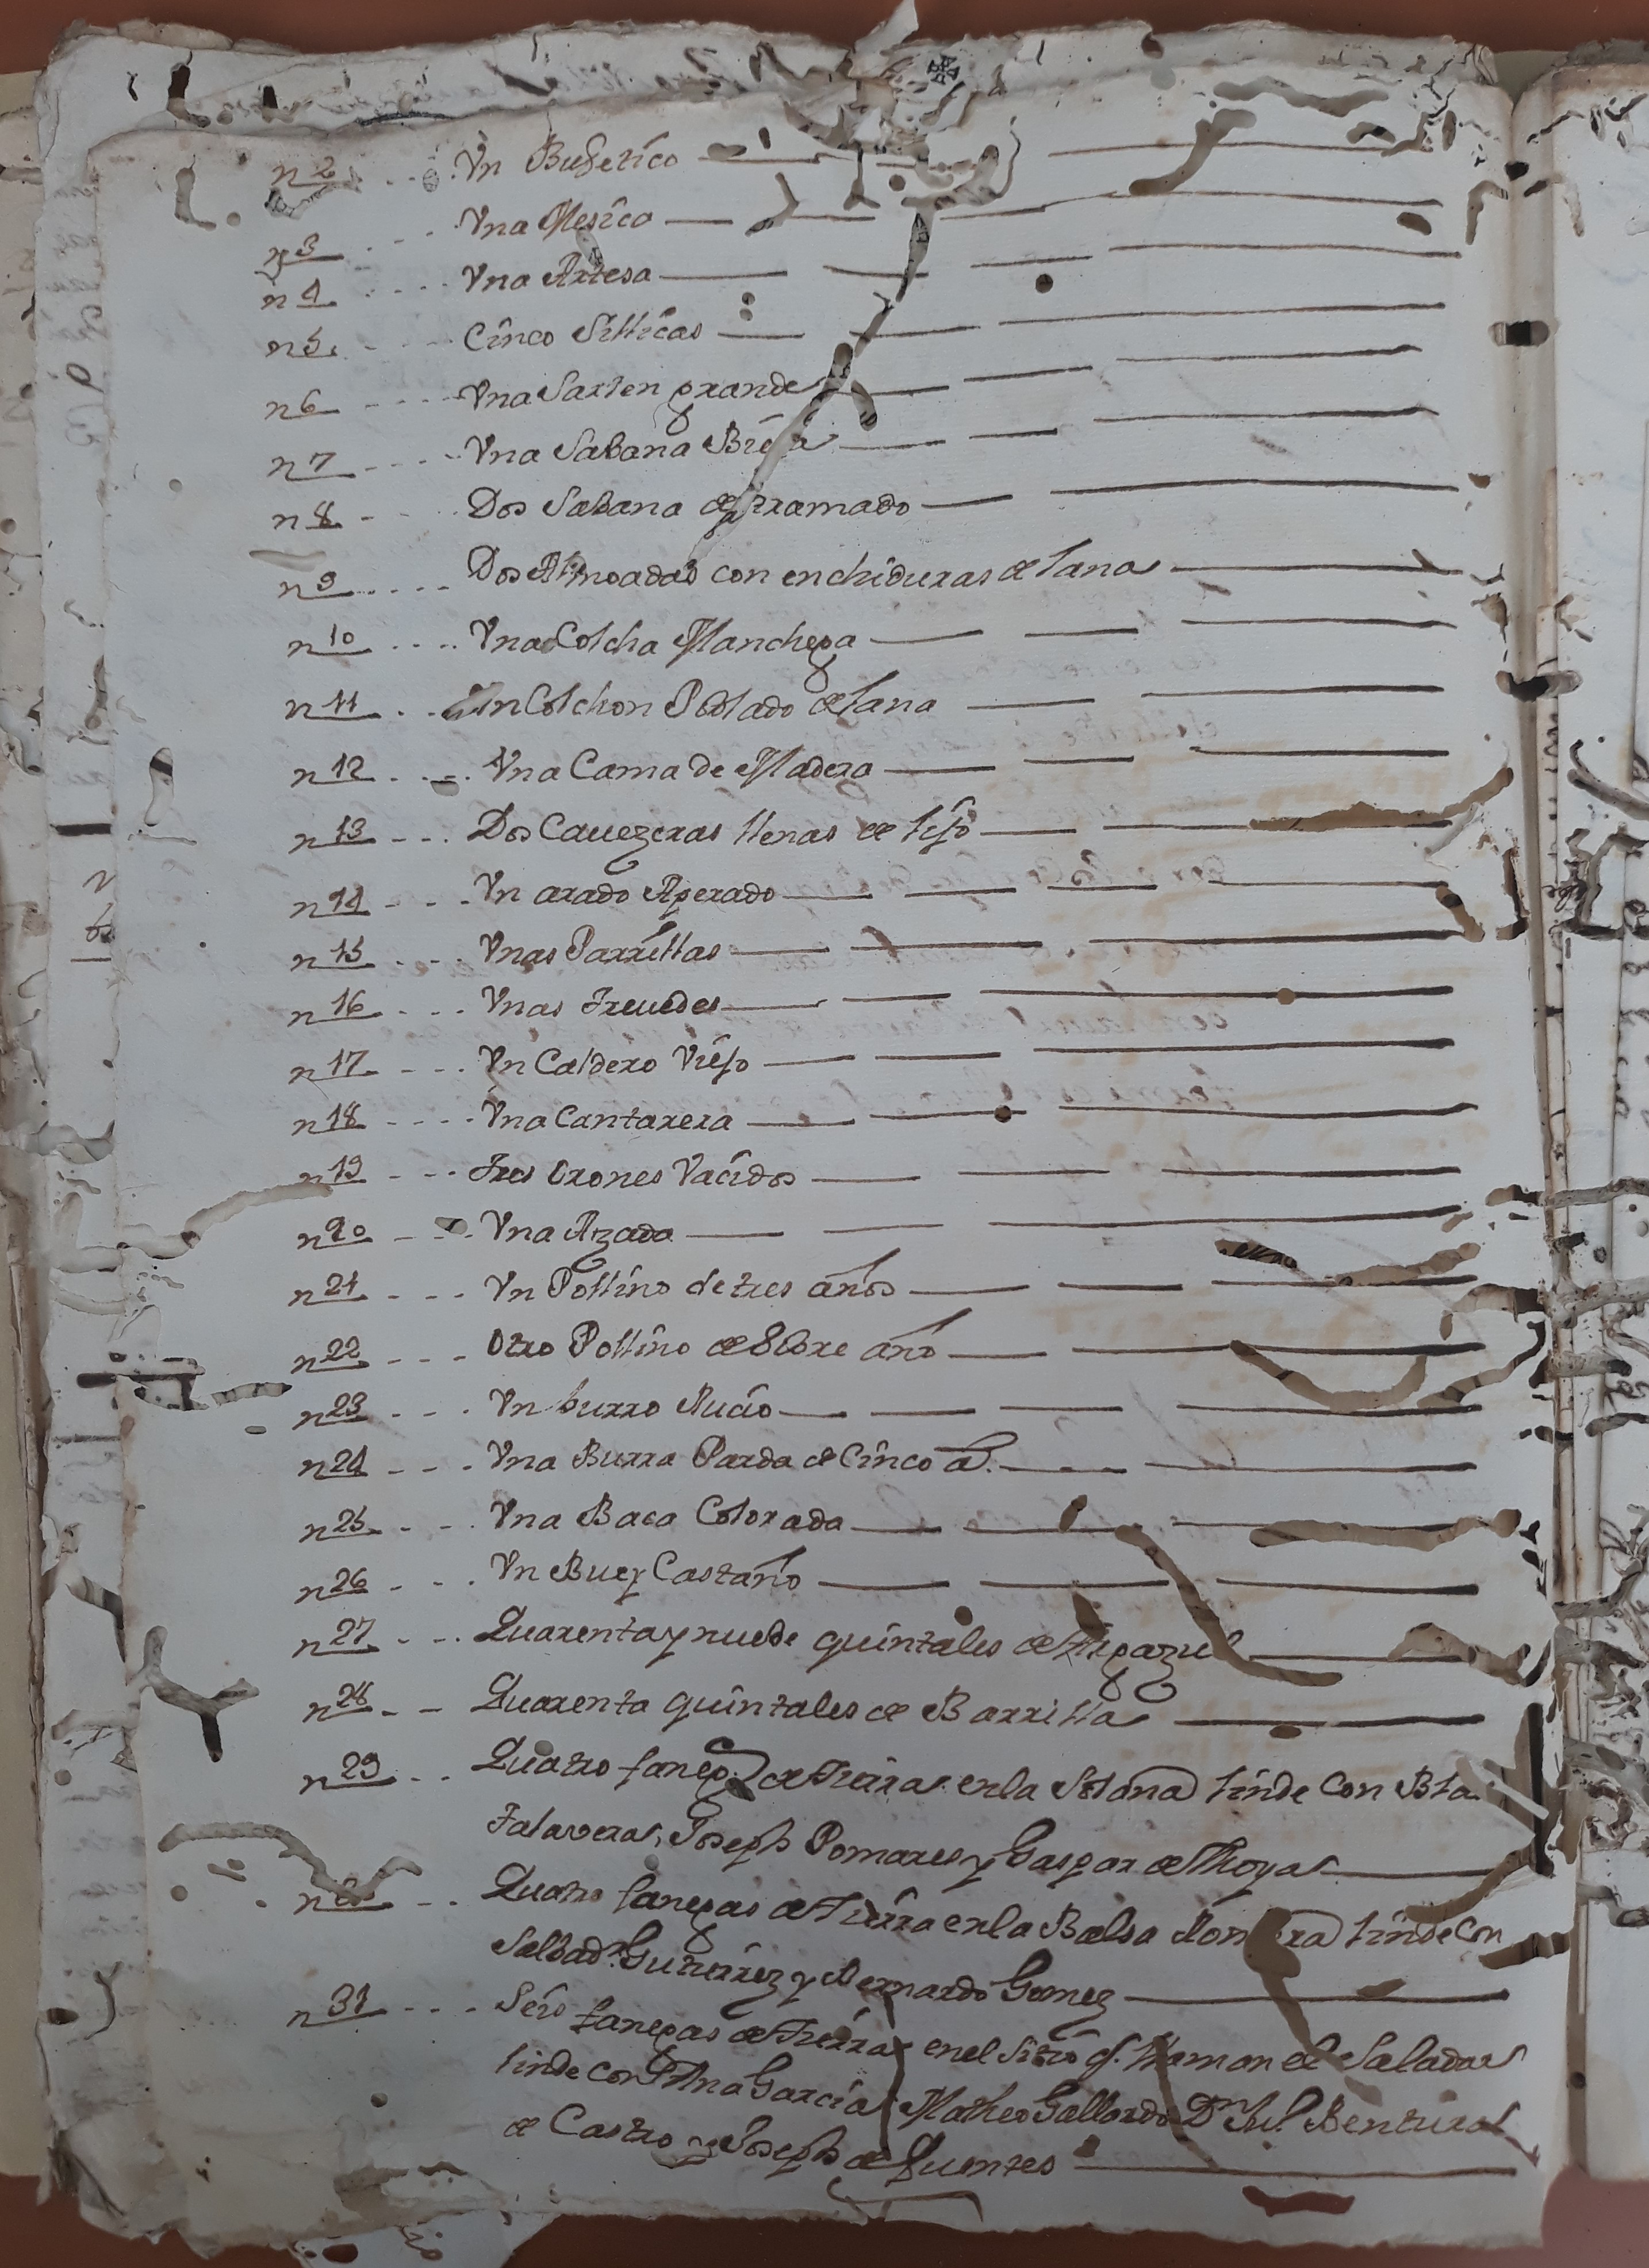 n 2 Vn Bufetico
n 3 Vna Mesica
n 4 Vna Artesa
n 5 Cinco Sillicas
n 6 Vna Sarten grande
n 7 Vna Sabana
n 8 Dos Sabana de
n 9 Dos Almoadas con enchiduras de lana
n 10 Vna Colcha Manchega
n 11 Vn Colchon Poblado de lana
n 12 Vna Cama de Madera
n 13 Dos Cauezeras llenas de
n 14 Vn arado Aperado
n 15 Vnas Parrillas
n 16 Vnas Treuedes
n 17 Vn Caldero Viejo
n 18 Vna Cantarera
n 19 Tres Orones Vacidos
n 20 Vna Azada
n 21 Vn Pollino de tres años
n 22 Otro Pollino de Sobre año
n 23 Vn burro Rucio
n 24 Vna Burra Parda de Cinco a.
n 25 Vna Baca Colorada
n 26 Vn Buey Castaño
n 27 Quarenta y nuebe quintales de
n 28 Quarenta quintales de Barrilla
n 29 Quatro faneg.s de Tierra en la Solana linde Con Bla
Talavera, Joseph Pomares y Gaspar de Moya
Quatro fanegas de Tierra en la Balsa linde Con
Salbad.r Gutierrez y Bernardo Gomez
n 31 Seis fanegas de Tierra en el Sitio q. llaman el Saladar
linde con Ana Garcia Matheo Gallardo Dn Bentura
de Castro y Joseph de Fuentes